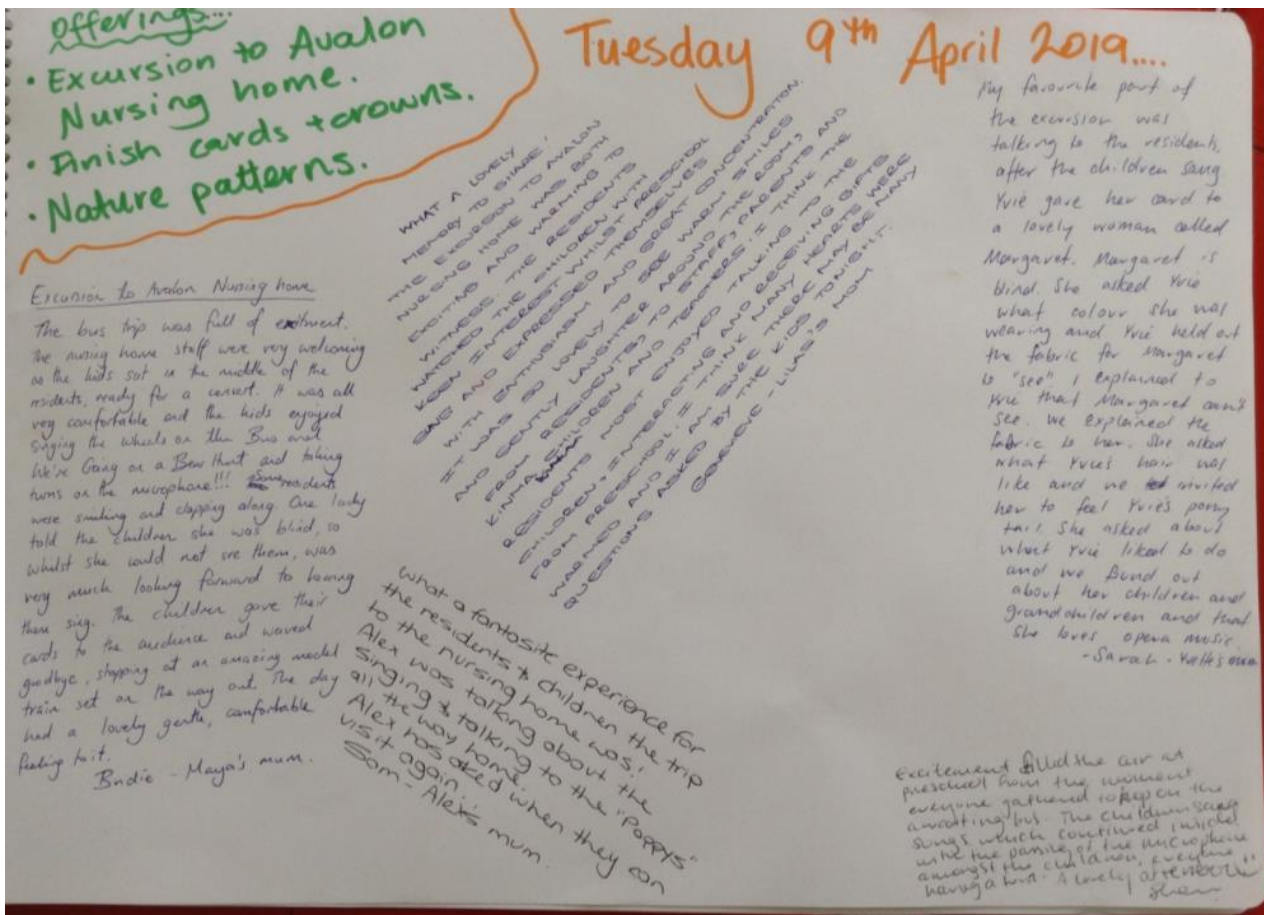 Offerings...
• Excursion to Avalon
Nursing home.
• Finish cards + crowns.
• Nature patterns.
Tuesday 9th April 2019....
Excursion to Avalon Nursing home
The bus trip was full of exitment.
The nursing home staff were very welcoming
as the kids sat in the middle of the
residents, ready for a concert. It was all
very comfortable and the kids enjoyed
singing the Wheels on the Bus and
We're Going on a Bear Hunt and taking
turns on the microphone!!! Some residents
were smiling and clapping along. One lady
told the children she was blind, so
whilst she could not see them, was
very much looking forward to hearing
them sing. The children gave their
cards to the audience and waved
goodbye, stopping at an amazing model
train set on the way out. The day
had a lovely gentle, comfortable
feeling to it.
- Maya's mum.
WHAT A LOVELY
MEMORY TO SHARE!
THE EXCURSION TO AVALON
NURSING HOME WAS BOTH
EXCITING AND WARMING TO
WITNESS. THE RESIDENTS
WATCHED THE CHILDREN WITH
KEEN INTEREST WHILST PRESCHOOL
SANG AND EXPRESSED THEMSELVES
WITH ENTHUSIASM AND GREAT CONCENTRATON.
IT WAS SO LOVELY TO SEE WARM SMILES
AND GENTLY LAUGHTER AROUND THE ROOM,
FROM RESIDENTS TO STAFF, PARENTS AND
KINMA CHILDREN AND TEACHERS. I THINK THE
RESIDENTS MOST ENJOYED TALKING TO THE
CHILDREN, INTERACTING AND RECEIVING GIFTS
FROM PRESCHOOL. I THINK MANY HEARTS WERE
WARMED AND I AM SURE THERE MAY BE MANY
QUESTIONS ASKED BY THE KIDS TONIGHT.
- LILA'S MUM
What a fantasite experience for
the residents & children the trip
to the nursing home was!
Alex was talking about the
singing & talking to the "Poppys"
all the way home.
Alex has asked when they can
visit again.
Sam - Alex's mum.
My favourite part of
the excursion was
talking to the residents,
after the children sang
Yvie gave her card to
a lovely woman called
Margaret. Margaret is
blind. She asked Yvie
what colour she was
wearing and Yvie held out
the fabric for Margaret
to "see". I explained to
Yvie that Margaret can't
see. We explained the
fabric to her. She asked
what Yvie's hair was
like and we invited
her to feel Yvie's pony
tail. She asked about
what Yvie liked to do
and we found out
about her children and
grandchildren and that
she loves opera music.
- Sarah -
Excitement filled the air at
preschool from the moment
everyone gathered to hop on the
awaiting bus. The children sang
songs which continued inside
with the passing of the microphone
amongst the children, everyone
having a turn. A lovely afternoon